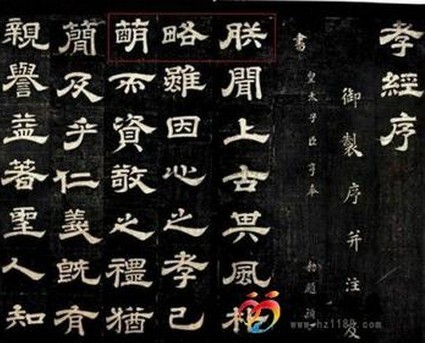 孝經序
御製序并注及
書
皇太子臣亨奉 勅題額
朕聞上古其風朴
略雖因心之孝已
萌而資敬之禮猶
簡及乎仁義既有
親譽益著聖人知
www.hz1188.com